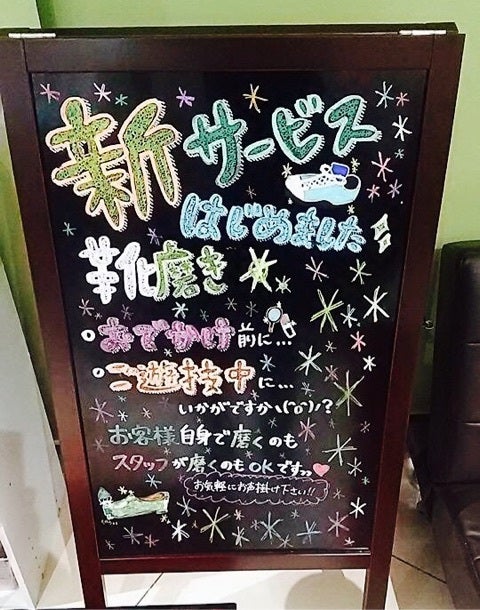 新サービス
はじめました
靴磨き
おでかけ前に...
ご遊技中に...
いかがですかヽ('o')ﾉ?
お客様自身で磨くのも
スタッフが磨くのもOKです♥
お気軽にお声掛け下さい!!